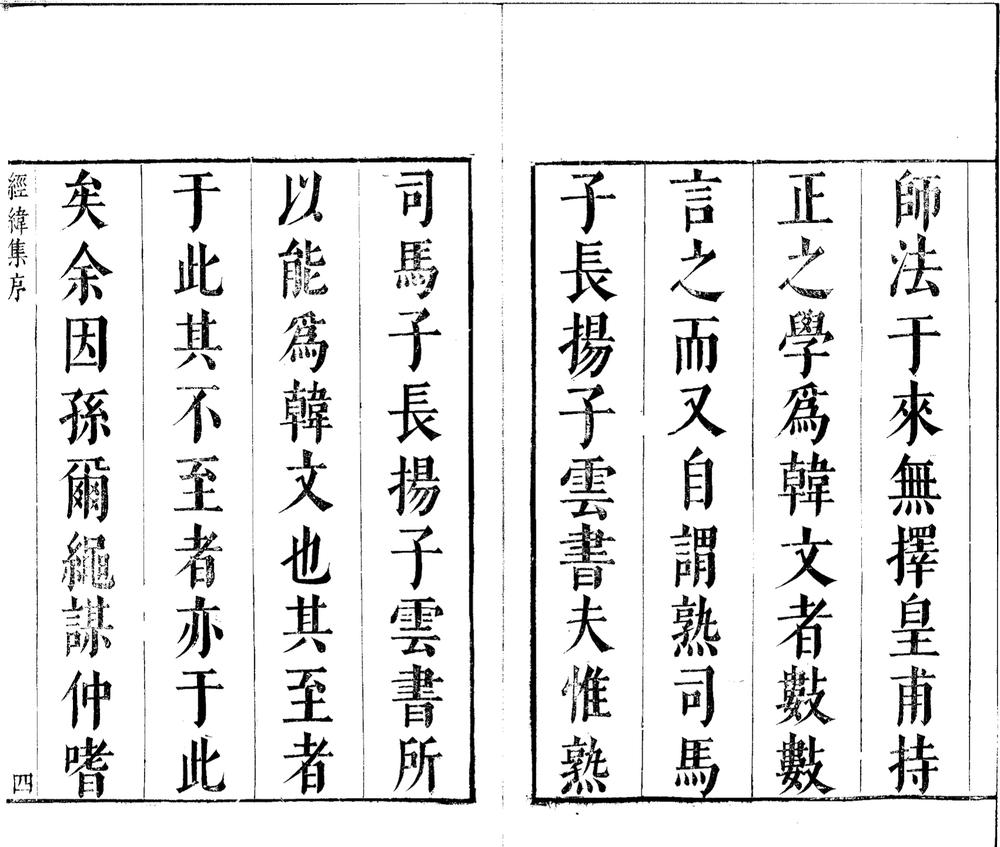 師法于來無擇皇甫持
正之學爲韓文者數數
言之而又自謂熟司馬
子長揚子雲書夫惟熟
司馬子長揚子雲書所
以能爲韓文也其至者
于此其不至者亦于此
矣余因孫爾繩謀仲嗜
經緯集序
四